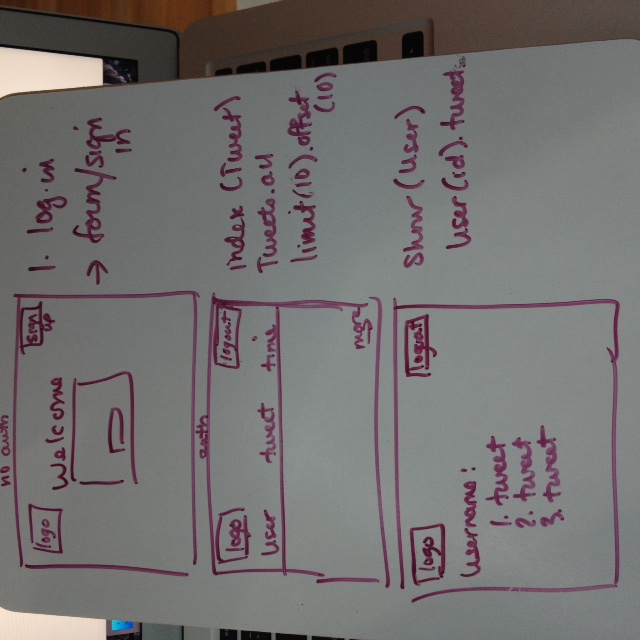 no auth
logo
sign
up
Welcome
1. log.in
→ form/sign
in
auth
logo
logout
user tweet time
more
index (Tweet)
Tweets.all
limit(10).offset
(10)
logo
logout
username:
1. tweet
2. tweet
3. tweet
show (User)
User(id).tweets